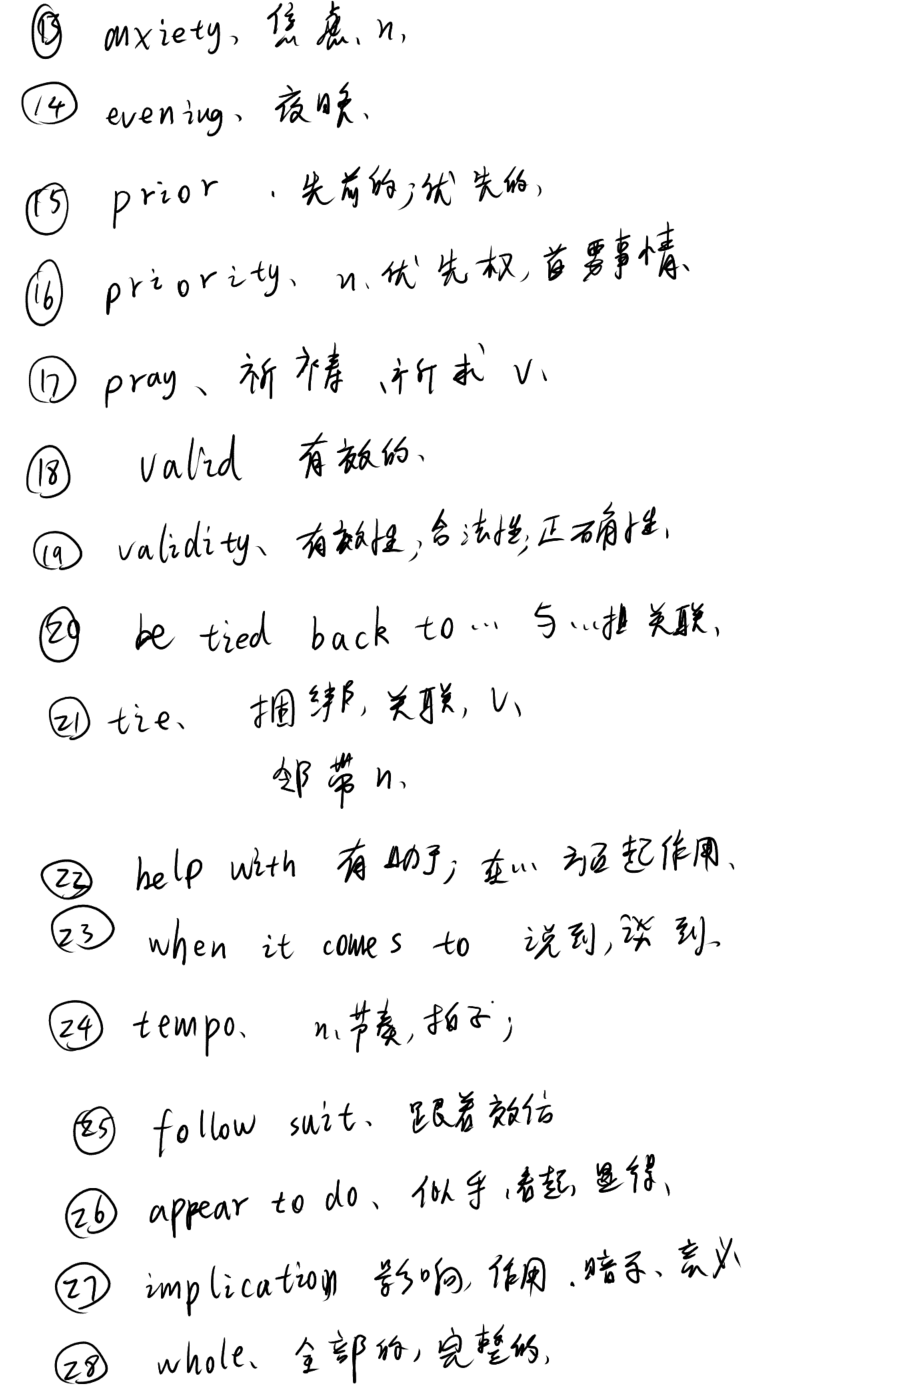 ⑬ anxiety、焦虑、n,
⑭ evening、夜晚、
⑮ prior 、先前的;优先的,
⑯ priority、n、优先权,首要事情、
⑰ pray、祈祷、祈求 v、
⑱ valid 有效的、
⑲ validity、有效性;合法性;正确性,
⑳ be tied back to… 与…相关联,
㉑ tie、捆绑,关联,v、
带 n、
㉒ help with 有助于;在…方面起作用、
㉓ when it comes to 说到,谈到、
㉔ tempo、n、节奏,拍子;
㉕ follow suit、跟着效仿
㉖ appear to do、似乎、看起,显得、
㉗ implication 影响,作用、暗示、意义
㉘ whole、全部的,完整的,